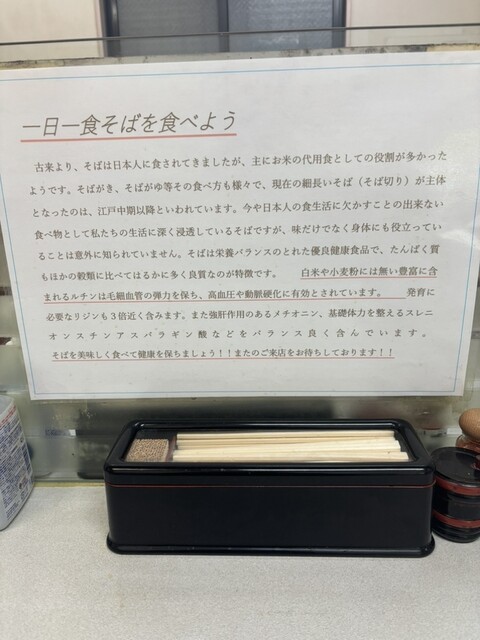 一日一食そばを食べよう
古来より、そばは日本人に食されてきましたが、主にお米の代用食としての役割が多かった
ようです。そばがき、そばがゆ等その食べ方も様々で、現在の細長いそば（そば切り）が主体
となったのは、江戸中期以降といわれています。今や日本人の食生活に欠かすことの出来ない
食べ物として私たちの生活に深く浸透しているそばですが、味だけでなく身体にも役立ってい
ることは意外に知られていません。そばは栄養バランスのとれた優良健康食品で、たんぱく質
もほかの穀類に比べてはるかに多く良質なのが特徴です。　白米や小麦粉には無い豊富に含
まれるルチンは毛細血管の弾力を保ち、高血圧や動脈硬化に有効とされています。　発育に
必要なリジンも３倍近く含みます。また強肝作用のあるメチオニン、基礎体力を整えるスレニ
オンスチンアスパラギン酸などをバランス良く含んでいます。
そばを美味しく食べて健康を保ちましょう！！またのご来店をお待ちしております！！